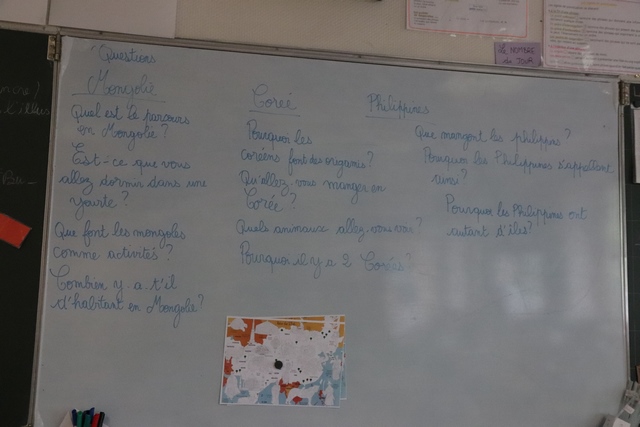 Questions
Mongolie
Quel est le parcours
en Mongolie?
Est-ce que vous
allez dormir dans une
yourte?
Que font les mongoles
comme activités?
Combien y.a.t'il
d'habitant en Mongolie?
Coreé
Pourquoi les
coréens font des origamis?
Qu'allez-vous manger en
Corée?
Quels animaux allez-vous voir?
Pourquoi il y a 2 Corées?
Philippines
Que mangent les philippins?
Pourquoi les Philippines s'appellent
ainsi?
Pourquoi les Philippines ont
autant d'îles?
LE NOMBRE
du JOUR